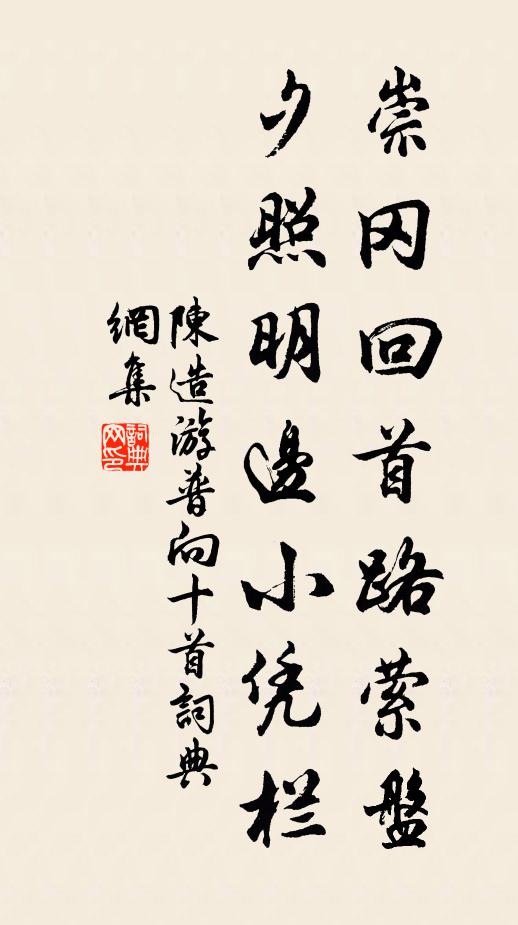 崇冈回首路萦盤
夕照明邊小凭栏
陳造游普向十首詞典
網集
詞典網印